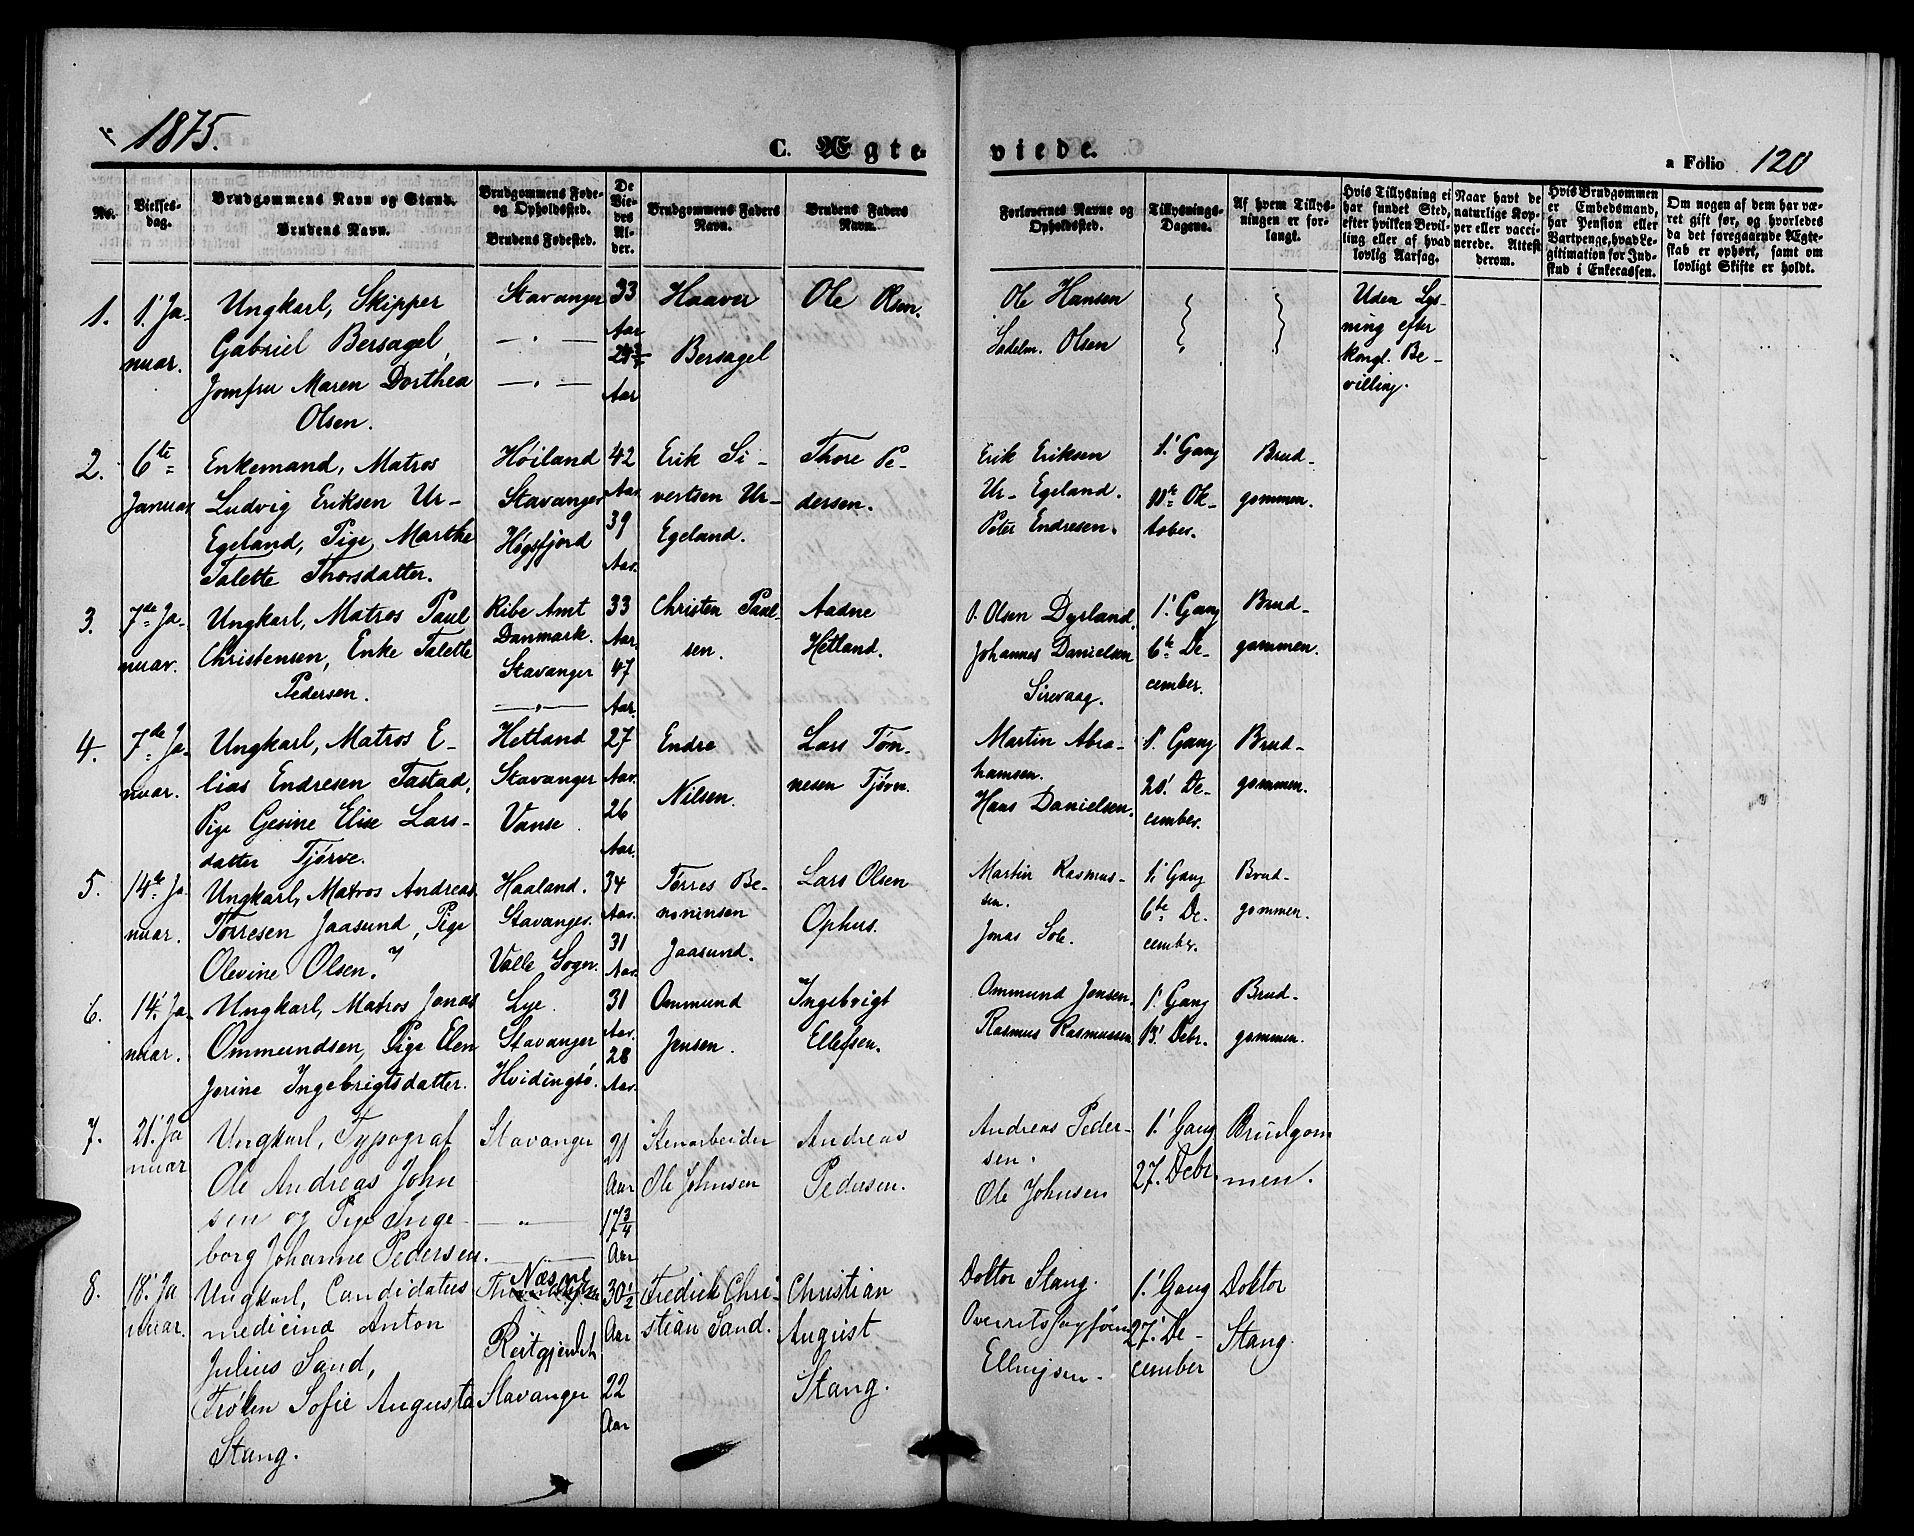 1875.
C. Ægteviede.
a Folio 120
No.
Vielsesdag.
Brudgommens Navn og Stand.
Brudens Navn.
Brudgommens Føde- og Opholdssted.
Brudens Fødested.
De Viedes Alder.
Brudgommens Faders Navn.
Brudens Faders Navn.
Forlovernes Navne og Opholdssted.
Tillysnings-Dagene.
Af hvem Tillysningen er forlangt.
Hvis Tillysning ei har fundet Sted, efter hvilken Bevilling eller af hvad lovlig Aarsag.
Naar havt de naturlige Kopper eller vaccinerede. Attest derom.
Hvis Brudgommen er Embedsmand, har Pension eller Vartpenge, hvad Legitimation for Indskud i Enkecassen.
Om nogen af dem har været gift før, og hvorledes da det foregaaende Ægteskab er ophørt, samt om lovligt Skifte er holdt.
1.
1' Januar.
Ungkarl, Skipper
Gabriel Bersagel,
Jomfru Maren Dorthea
Olsen.
Stavanger
— " —
— " —
33
Aar
Aar
Haaver
Bersagel
Ole Olsen.
Ole Hansen
Sadelm. Olsen
Uden Lys-
ning efter
kongl. Be-
villing.
2.
6te
Januar
Enkemand, Matros
Ludvig Eriksen Ur-
Egeland, Pige Marthe
Talette Thorsdatter.
Høiland
Stavanger
Høgsfjord
42
Aar.
39
Aar.
Erik Si-
vertsen Ur-
Egeland.
Thore Pe-
dersen.
Erik Eriksen
Ur- Egeland.
Peter Endresen.
1' Gang
11te Ok-
tober.
Brud-
gommen.
3.
7de Ja-
nuar.
Ungkarl, Matros Paul
Christensen, Enke Talette
Pedersen.
Ribe Amt
Danmark.
Stavanger
— " —
33
Aar.
47
Aar.
Christen Paul-
sen.
Aadne
Hetland.
O. Olsen Dyrland.
Johannes Danielsen
Sirevaag.
1' Gang
6te De-
cember.
Brud-
gommen.
4.
7de Ja-
nuar.
Ungkarl, Matros E-
lias Endresen Tastad,
Pige Gesine Elise Lars-
datter Tjørve.
Hetland
Stavanger
Vanse
27
Aar.
26
Aar.
Endre
Nilsen.
Lars Tøn-
nesen Tjørn.
Martin Abra-
hamsen.
Hans Danielsen.
1' Gang
20' De-
cember.
Brud-
gommen.
5.
14de Ja-
nuar.
Ungkarl, Matros Andreas
Tørresen Jaasund, Pige
Olevine Olsen.
Haaland.
Stavanger.
Valle Sogn.
34
Aar.
31
Aar.
Tørres Be-
noninsen
Jaasund.
Lars Olsen
Ophus.
Martin Rasmus-
sen.
Jonas Sole.
1' Gang
6te De-
cember.
Brud-
gommen.
6.
14' Ja-
nuar.
Ungkarl, Matros Jonas
Ommundsen, Pige Elen
Jorine Ingebrigtsdatter.
Lye.
Stavanger
Hvidingsø.
31
Aar.
28
Aar.
Ommund
Jensen.
Ingebrigt
Ellefsen.
Ommund Jensen.
Rasmus Rasmussen
1' Gang
13' Debr.
Brud-
gommen.
7.
21' Ja
nuar
Ungkarl, Typograf
Ole Andreas John
sen og Pige Inge-
borg Johanne Pedersen.
Stavanger
— " —
21
Aar
17 3/4
Aar
Stenarbeider
Ole Johnsen
Andreas
Pedersen.
Andreas Peder-
sen.
Ole Johnsen
1' Gang
27. Debr.
Brudgom
men.
8.
18' Ja
nuar.
Ungkarl, Candidatus
medicinæ Anton
Julius Sand,
Frøken Sofie Augusta
Stang.
Næs
Stavanger
30 1/2
Aar
22
Aar
Fredrik Chri-
stian Sand.
Christian
August
Stang.
Doktor Stang.
Ellingsen.
1' Gang
27' De-
cember
Doktor
Stang.